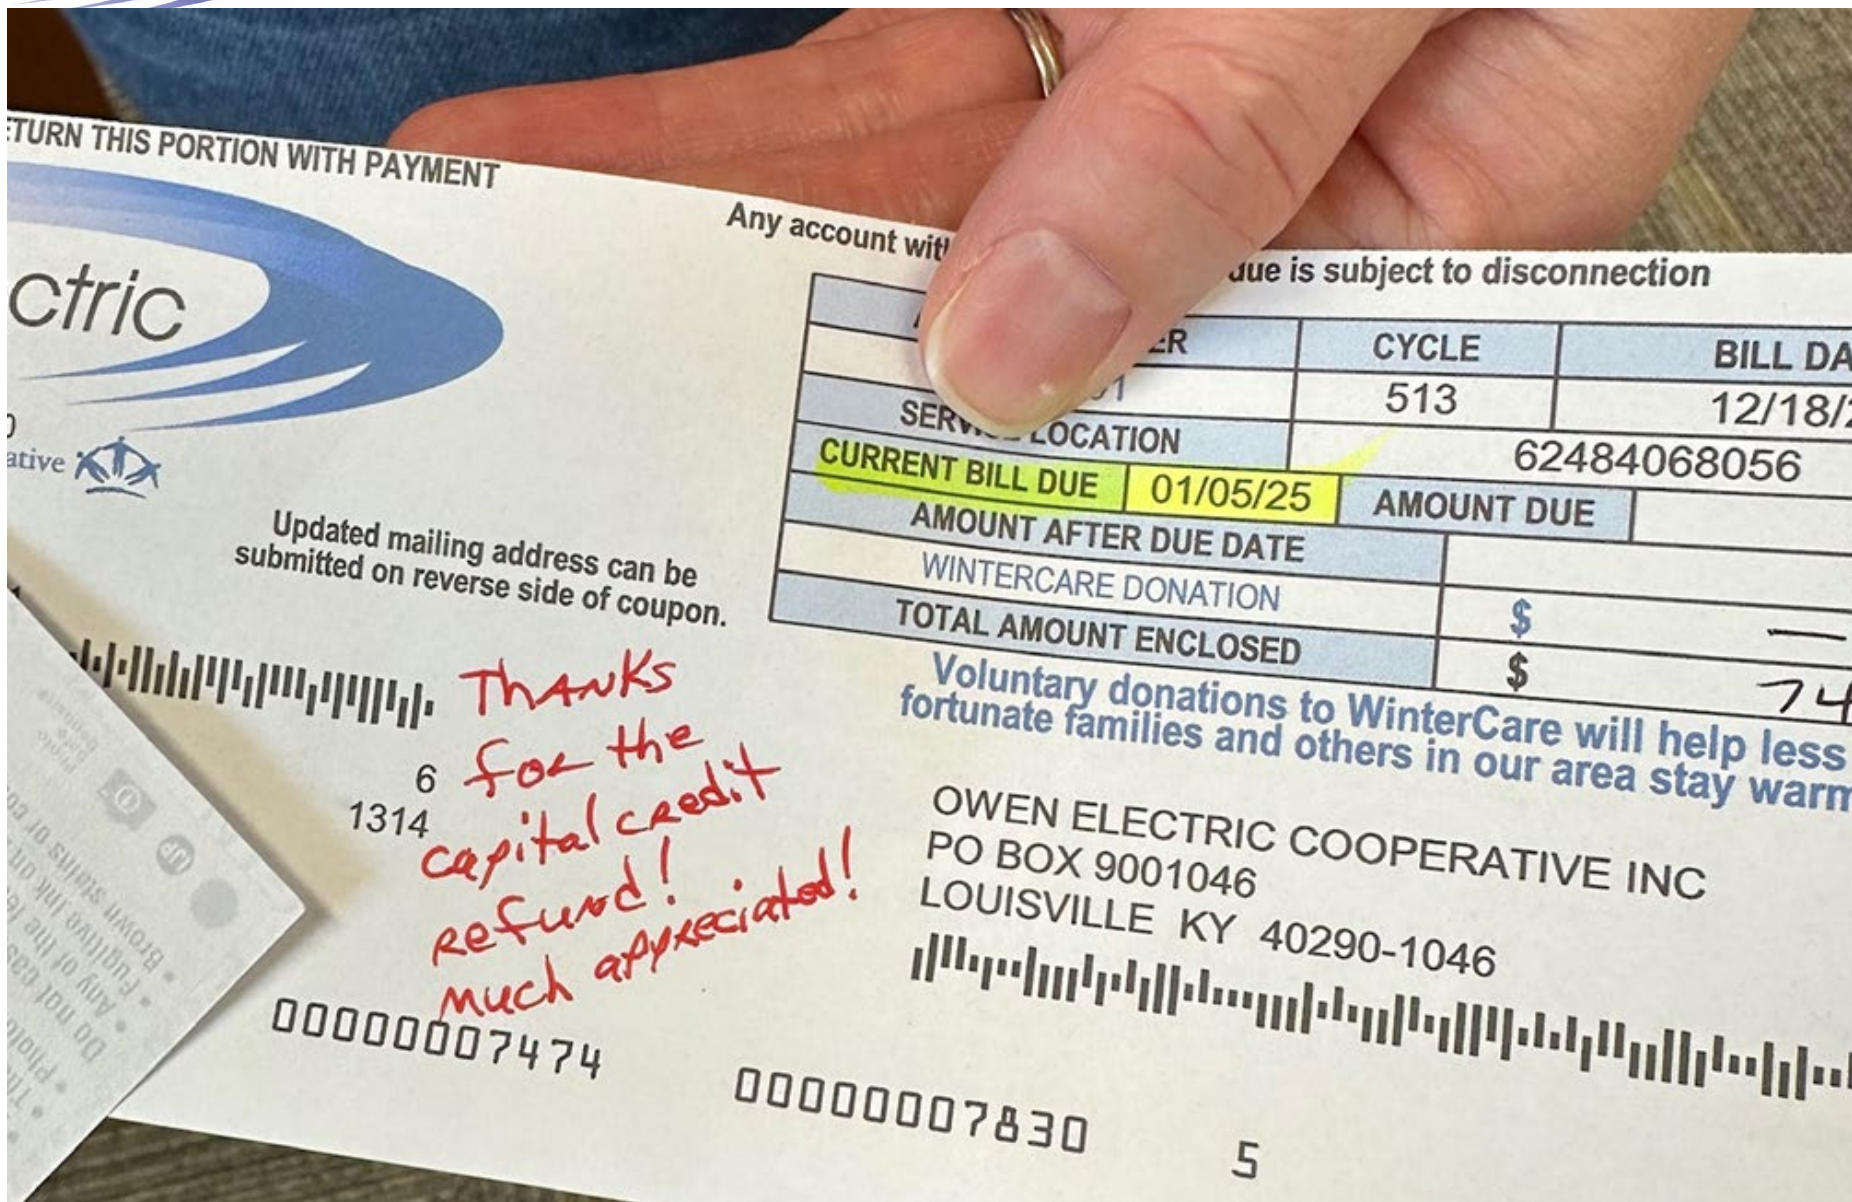 TURN THIS PORTION WITH PAYMENT
ctric
ative
Any account due is subject to disconnection
CYCLE
BILL DA
513
12/18/2
SERVICE LOCATION
62484068056
CURRENT BILL DUE 01/05/25 AMOUNT DUE
AMOUNT AFTER DUE DATE
WINTERCARE DONATION $ —
TOTAL AMOUNT ENCLOSED $ 74
Updated mailing address can be
submitted on reverse side of coupon.
Voluntary donations to WinterCare will help less
fortunate families and others in our area stay warm
6
1314
Thanks
for the
capital credit
refund!
much appreciated!
OWEN ELECTRIC COOPERATIVE INC
PO BOX 9001046
LOUISVILLE KY 40290-1046
00000007474
00000007830
5
Do not
Any of the
Fugitive ink on
Brown stains or